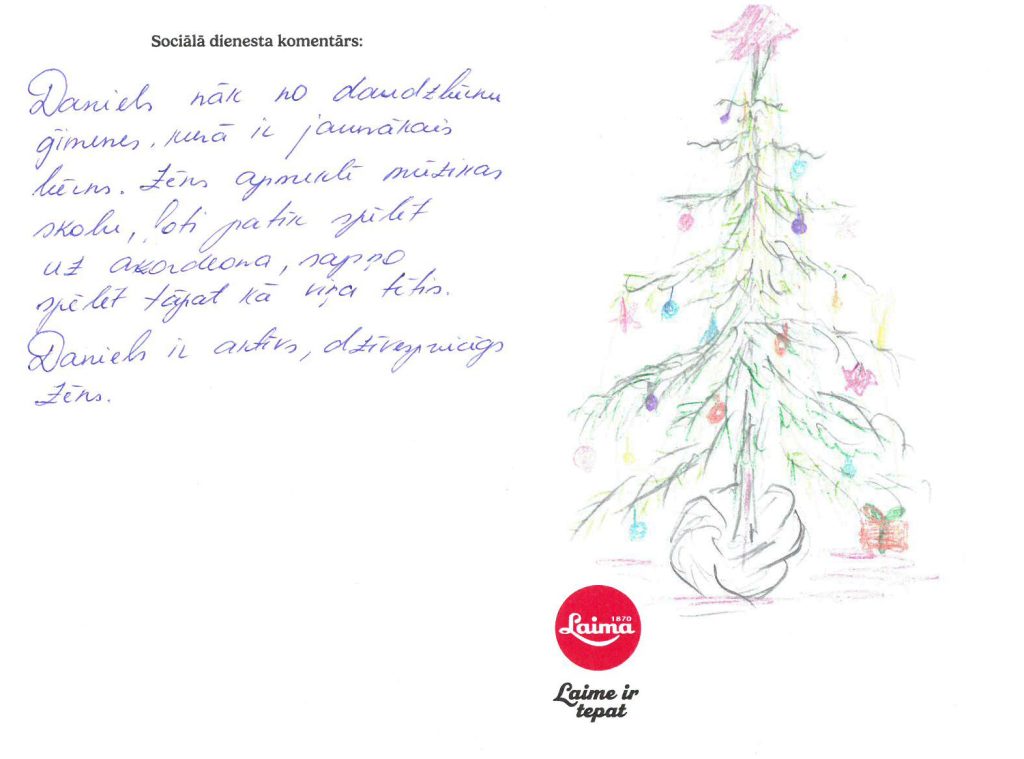 Sociālā dienesta komentārs:
Daniels nāk no daudzbērnu
ģimenes, kurā ir jaunākais
bērns. Zēns apmeklē mūzikas
skolu, ļoti patīk spēlēt
uz akordeona, sapņo
spēlēt tāpat kā viņa tētis.
Daniels ir aktīvs, dzīvespriecīgs
zēns.
1870
Laima
Laime ir
tepat